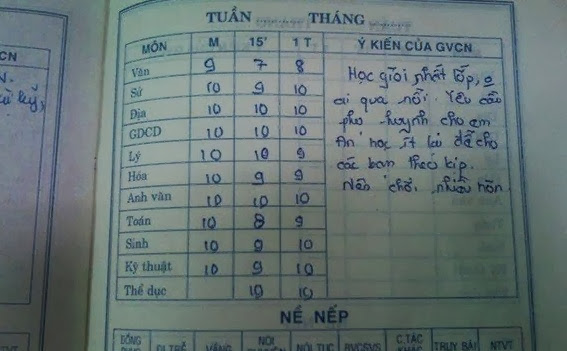 TUẦN THÁNG
MÔN M 15' 1 T Ý KIẾN CỦA GVCN
Văn 9 7 8
Sử 10 9 10
Địa 10 10 10
GDCD 10 10 10
Lý 10 10 9
Hóa 10 9 9
Anh văn 10 10 10
Toán 10 8 9
Sinh 10 9 10
Kỹ thuật 10 9 10
Thể dục 10 10
Học giỏi nhất lớp, o
ai qua nổi. Yêu cầu
phụ huynh cho em
ăn học ít lại để cho
các bạn theo kịp.
Nên chơi nhiều hơn
NỀ NẾP
ĐỒNG ĐI TRỄ VẮNG NÓI NÓI TỤC C.TÁC TRUY BÀI NTVT
CN